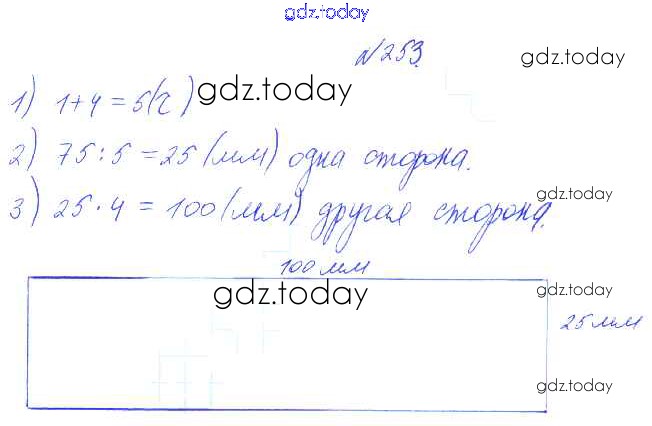 gdz.today
№253.
gdz.today
1) 1+4=5(ч) gdz.today
2) 75:5=25(мм) одна сторона.
gdz.today
3) 25·4=100(мм) другая сторона.
100 мм
gdz.today gdz.today
25 мм
gdz.today